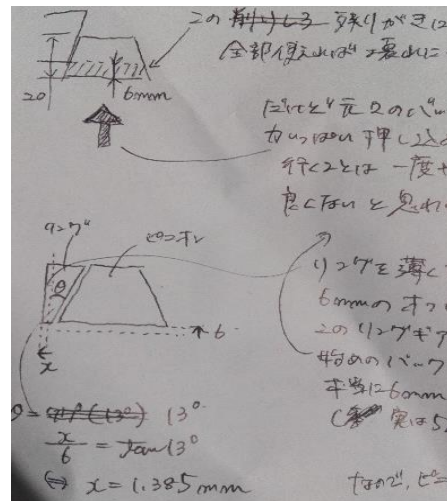 この 残りがきに
全部使えれば 壊れに
20
6mm
だけど 元々のバッ
力いっぱい押し込め
行くことは 一度や
良くないと思われ
リング
ピニオン
θ
6
x
リングを薄く
6mmのオフ
このリングギア
ためのバック
本当に6mm
実は5
θ = 13°
x/6 = tan 13°
⇔ x = 1.385mm
なので、ピニ